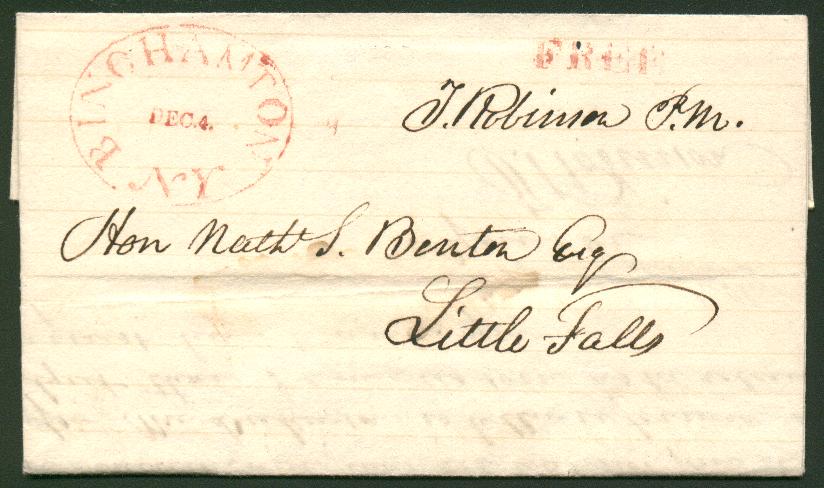 BINGHAMTON N.Y
DEC.4.
FREE
J. Robinson P.M.
Hon Nathl S. Benton Esq
Little Falls